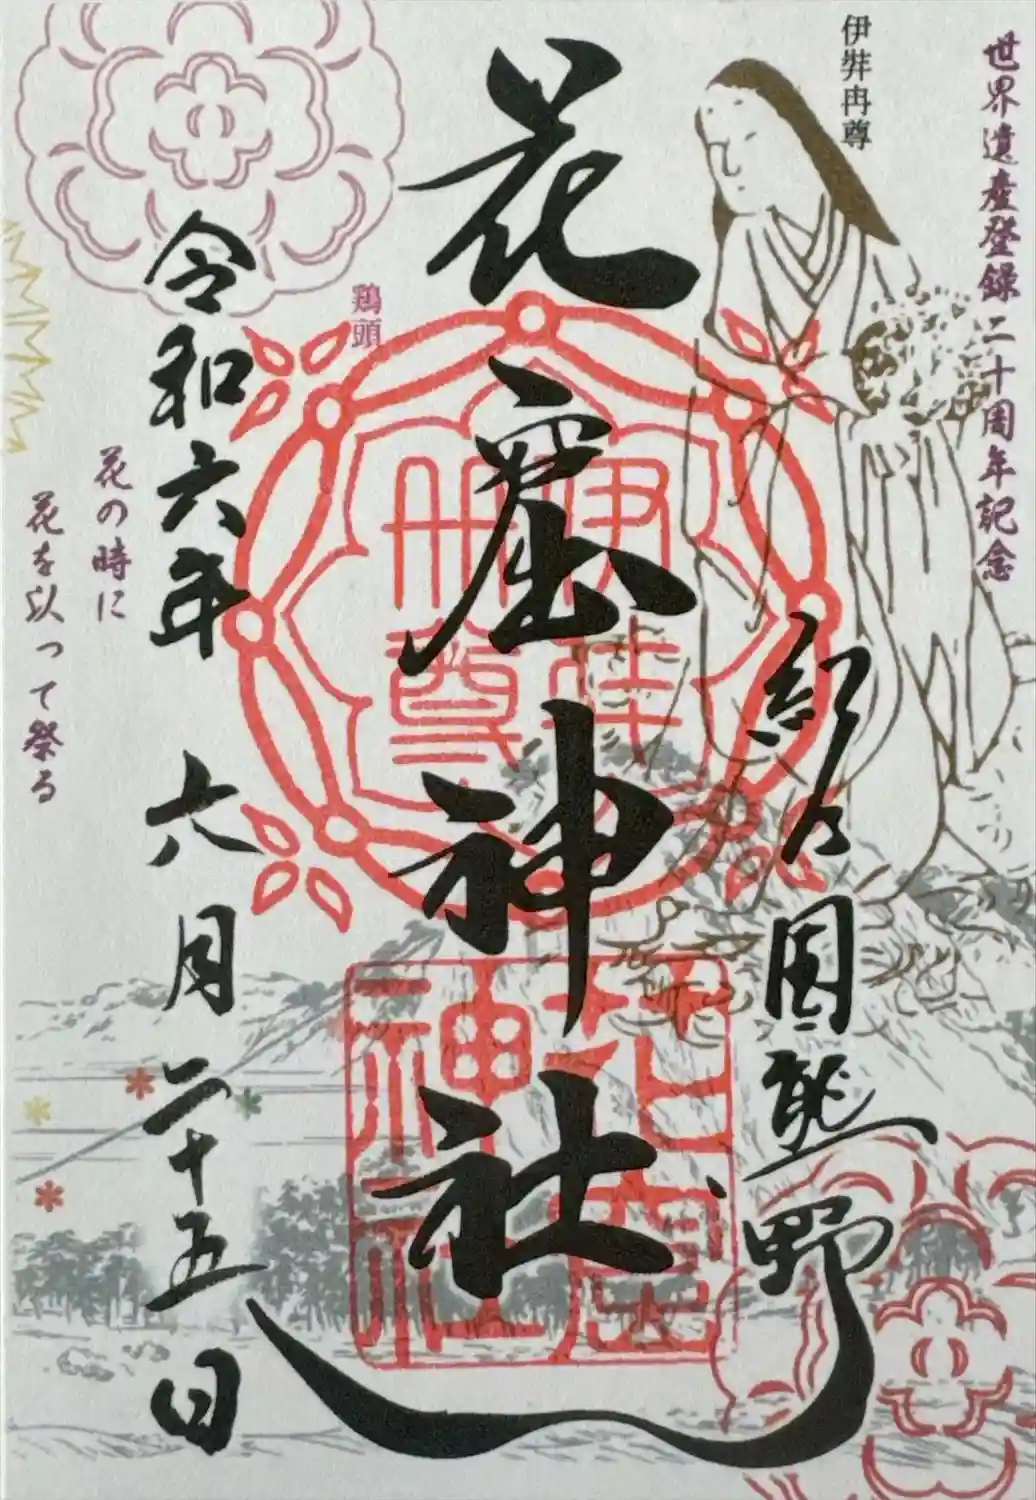 世界遺産登録二十周年記念
伊弉冉尊
紀国熊野
花窟神社
伊弉
冊尊
花窟
神社
鶏頭
令和六年六月二十五日
花の時に
花を以って祭る